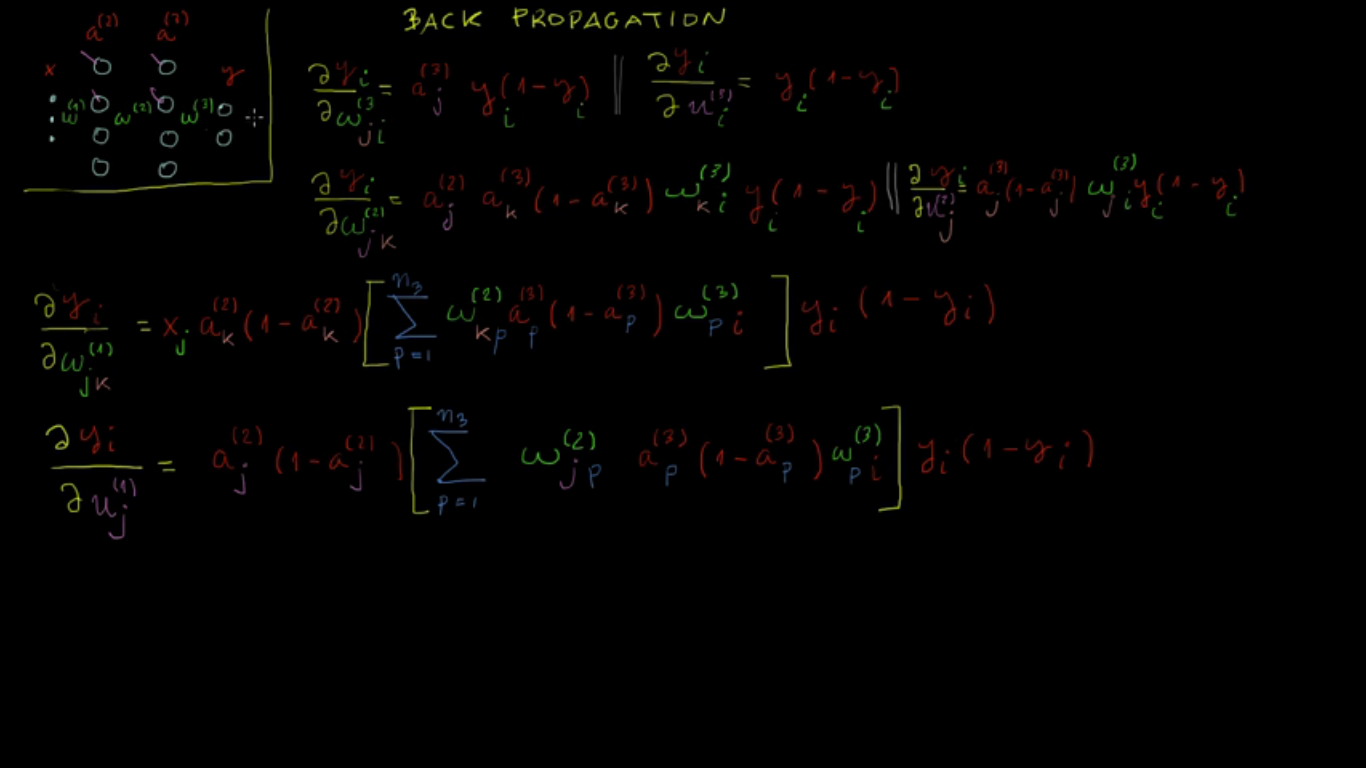 BACK PROPAGATION
a^(2) a^(3)
x y
w^(1) w^(2) w^(3)
∂y_i/∂w_ji^(3 = a_j^(3) y_i(1-y_i) || ∂y_i/∂u_i^(3) = y_i(1-y_i)
∂y_i/∂w_jk^(2) = a_j^(2) a_k^(3)(1-a_k^(3)) w_ki^(3) y_i(1-y_i) || ∂y_i/∂u_j^(2) = a_j^(3)(1-a_j^(3)) w_ji^(3) y_i(1-y_i)
∂y_i/∂w_jk^(1) = x_j a_k^(2)(1-a_k^(2)) [∑_{p=1}^{n_3} w_kp^(2) a_p^(3)(1-a_p^(3)) w_pi^(3)] y_i(1-y_i)
∂y_i/∂u_j^(1) = a_j^(2)(1-a_j^(2)) [∑_{p=1}^{n_3} w_jp^(2) a_p^(3)(1-a_p^(3)) w_pi^(3)] y_i(1-y_i)